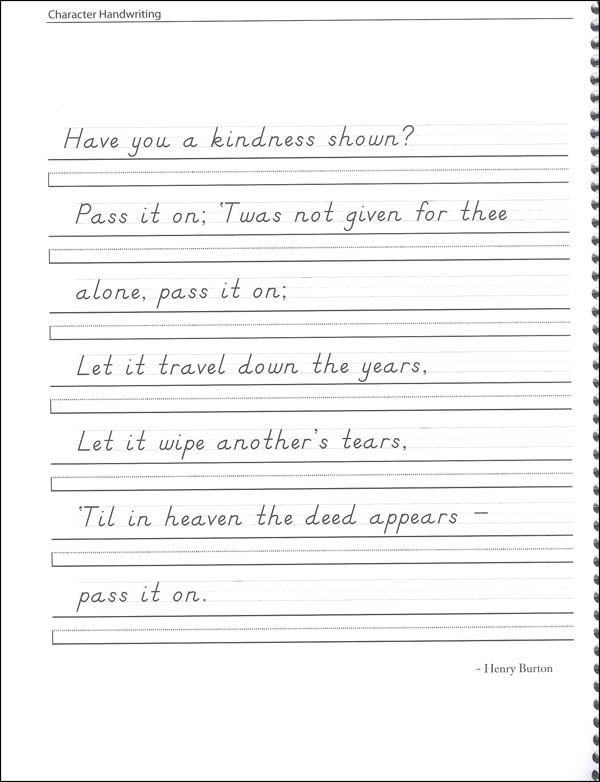 Character Handwriting
Have you a kindness shown?
Pass it on; 'Twas not given for thee
alone, pass it on;
Let it travel down the years,
Let it wipe another's tears,
'Til in heaven the deed appears –
pass it on.
- Henry Burton